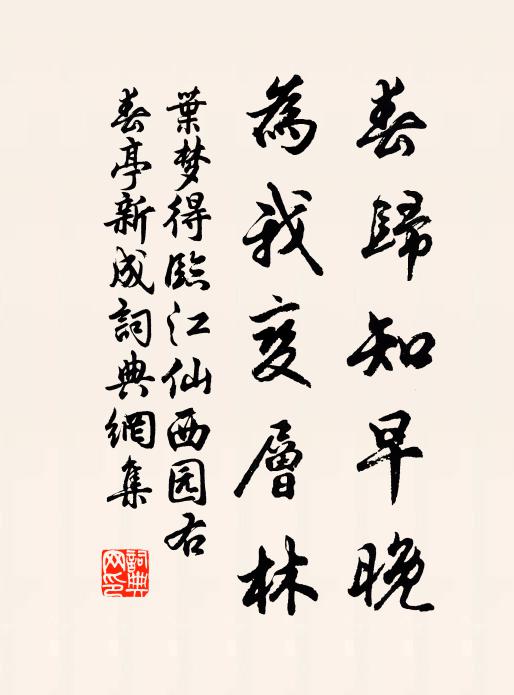 春歸知早晚
為我变層林
葉梦得臨江仙西园右
春亭新成詞典網集
詞典网印